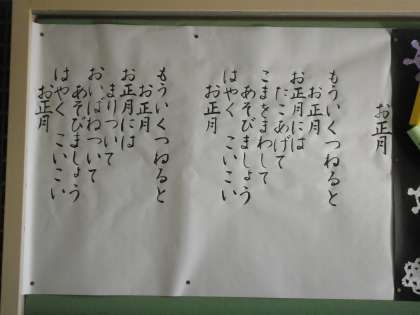 お正月
もういくつねると
お正月
お正月には
たこあげて
こまをまわして
あそびましょう
はやく こいこい
お正月
もういくつねると
お正月
お正月には
まりついて
おいばねついて
あそびましょう
はやく こいこい
お正月